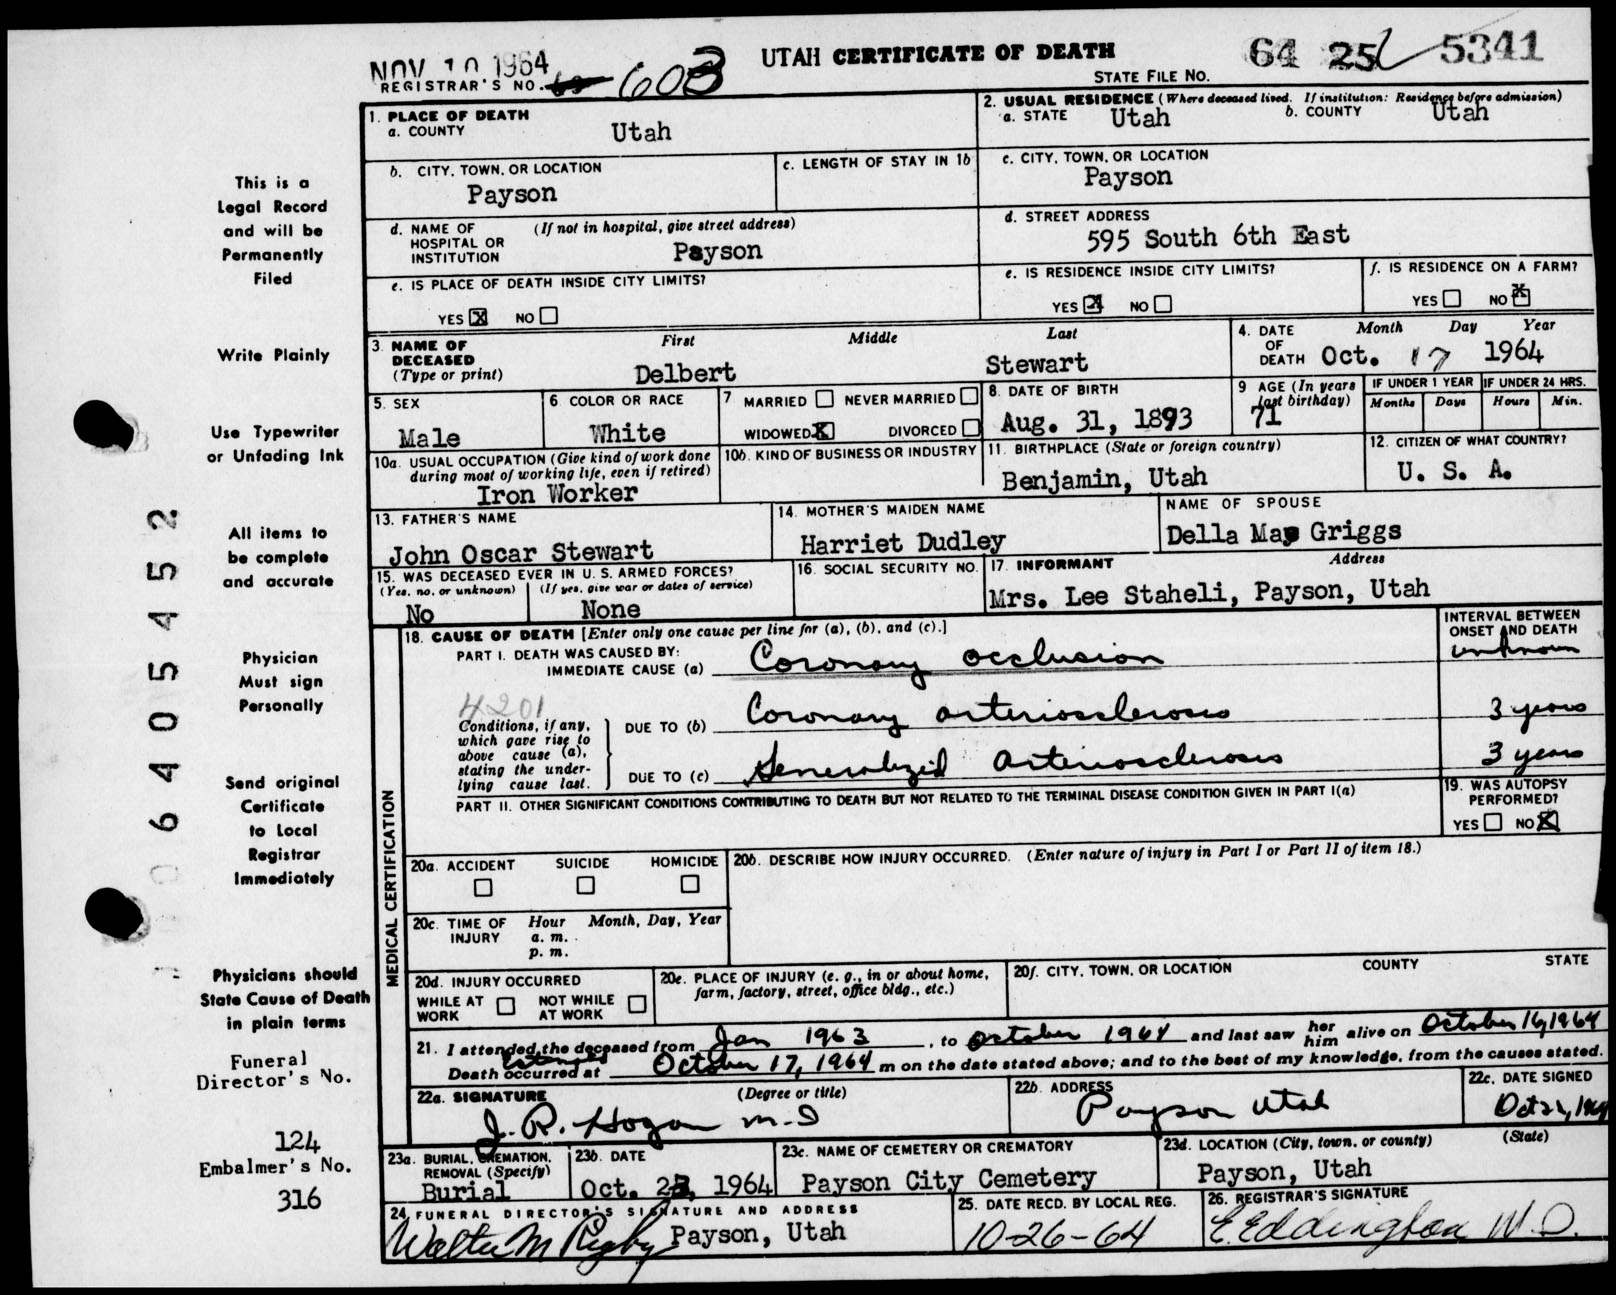 NOV 10 1964
UTAH CERTIFICATE OF DEATH
64 25 5341
REGISTRAR'S NO. 603
STATE FILE NO.
1. PLACE OF DEATH
a. COUNTY Utah
2. USUAL RESIDENCE (Where deceased lived. If institution: Residence before admission)
a. STATE Utah b. COUNTY Utah
b. CITY, TOWN, OR LOCATION
Payson
c. LENGTH OF STAY IN 1b
c. CITY, TOWN, OR LOCATION
Payson
d. NAME OF HOSPITAL OR INSTITUTION (If not in hospital, give street address)
Payson
d. STREET ADDRESS
595 South 6th East
e. IS PLACE OF DEATH INSIDE CITY LIMITS?
YES X NO
e. IS RESIDENCE INSIDE CITY LIMITS?
YES X NO
f. IS RESIDENCE ON A FARM?
YES NO X
3. NAME OF DECEASED (Type or print)
First Middle Last
Delbert Stewart
4. DATE OF DEATH Month Day Year
Oct. 17 1964
5. SEX
Male
6 COLOR OR RACE
White
7 MARRIED NEVER MARRIED
WIDOWED X DIVORCED
8. DATE OF BIRTH
Aug. 31, 1893
9 AGE (In years last birthday)
71
IF UNDER 1 YEAR IF UNDER 24 HRS.
Months Days Hours Min.
10a. USUAL OCCUPATION (Give kind of work done during most of working life, even if retired)
Iron Worker
10b. KIND OF BUSINESS OR INDUSTRY
11. BIRTHPLACE (State or foreign country)
Benjamin, Utah
12. CITIZEN OF WHAT COUNTRY?
U. S. A.
13. FATHER'S NAME
John Oscar Stewart
14. MOTHER'S MAIDEN NAME
Harriet Dudley
NAME OF SPOUSE
Della May Griggs
15. WAS DECEASED EVER IN U. S. ARMED FORCES?
(Yes, no, or unknown) (If yes, give war or dates of service)
No None
16. SOCIAL SECURITY NO.
17. INFORMANT Address
Mrs. Lee Staheli, Payson, Utah
MEDICAL CERTIFICATION
18. CAUSE OF DEATH [Enter only one cause per line for (a), (b), and (c).]
INTERVAL BETWEEN ONSET AND DEATH
PART I. DEATH WAS CAUSED BY:
IMMEDIATE CAUSE (a) Coronary occlusion unknown
4201
Conditions, if any, which gave rise to above cause (a), stating the underlying cause last.
DUE TO (b) Coronary arteriosclerosis 3 years
DUE TO (c) Generalized Arteriosclerosis 3 years
PART II. OTHER SIGNIFICANT CONDITIONS CONTRIBUTING TO DEATH BUT NOT RELATED TO THE TERMINAL DISEASE CONDITION GIVEN IN PART I(a)
19. WAS AUTOPSY PERFORMED?
YES NO X
20a. ACCIDENT SUICIDE HOMICIDE
20b. DESCRIBE HOW INJURY OCCURRED. (Enter nature of injury in Part I or Part II of item 18.)
20c. TIME OF INJURY Hour Month, Day, Year
a. m.
p. m.
20d. INJURY OCCURRED
WHILE AT WORK NOT WHILE AT WORK
20e. PLACE OF INJURY (e. g., in or about home, farm, factory, street, office bldg., etc.)
20f. CITY, TOWN, OR LOCATION COUNTY STATE
21. I attended the deceased from Jan 1963, to October 1964 and last saw her him alive on October 16, 1964
Death occurred at October 17, 1964 m on the date stated above; and to the best of my knowledge, from the causes stated.
22a. SIGNATURE (Degree or title)
J. R. Hogan M.D
22b. ADDRESS
Payson Utah
22c. DATE SIGNED
23a. BURIAL, CREMATION, REMOVAL (Specify)
Burial
23b. DATE
Oct. 23, 1964
23c. NAME OF CEMETERY OR CREMATORY
Payson City Cemetery
23d. LOCATION (City, town, or county) (State)
Payson, Utah
24 FUNERAL DIRECTOR'S SIGNATURE AND ADDRESS
Walter M Rigby Payson, Utah
25. DATE RECD. BY LOCAL REG.
10-26-64
26. REGISTRAR'S SIGNATURE
E Eddington M.D.
This is a
Legal Record
and will be
Permanently
Filed
Write Plainly
Use Typewriter
or Unfading Ink
All items to
be complete
and accurate
Physician
Must sign
Personally
Send original
Certificate
to Local
Registrar
Immediately
Physicians should
State Cause of Death
in plain terms
Funeral
Director's No.
124
Embalmer's No.
316
06405452